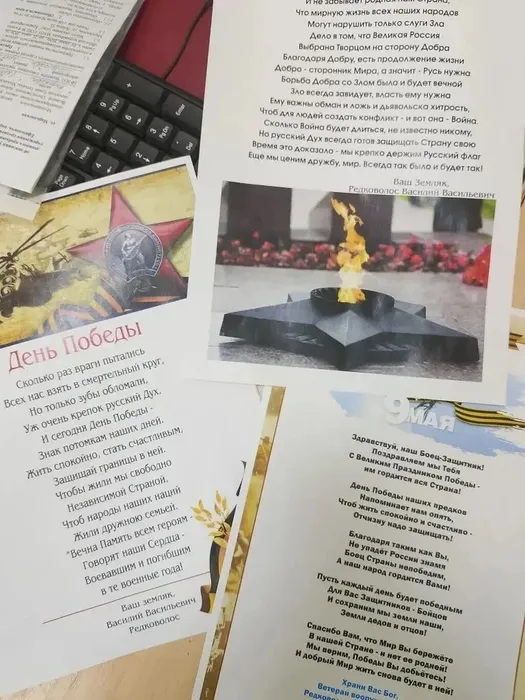 И не забывает родная нам Страна,
Что мирную жизнь всех наших народов
Могут нарушить только слуги Зла
Дело в том, что Великая Россия
Выбрана Творцом на сторону Добра
Благодаря Добру, есть продолжение жизни
Добро - сторонник Мира, а значит - Русь нужна
Борьба Добра со Злом была и будет вечной
Зло всегда завидует, власть ему нужна
Ему важны обман и ложь и дьявольска хитрость,
Чтоб для людей создать конфликт - и вот она - Война.
Сколько Война будет длиться, не известно никому,
Но русский Дух всегда готов защищать Страну свою
Время это доказало - мы крепко держим Русский флаг
Еще мы ценим дружбу, мир. Всегда так было и будет так!
Ваш Земляк,
Редковолос Василий Васильевич
День Победы
Сколько раз враги пытались
Всех нас взять в смертельный круг,
Но только зубы обломали,
Уж очень крепок русский Дух.
И сегодня День Победы -
Знак потомкам наших дней.
Жить спокойно, стать счастливым,
Защищай границы в ней.
Чтобы жили мы свободно
Независимой Страной.
Чтоб народы наших наций
Жили дружною семьей.
"Вечна Память всем героям -
Говорят наши Сердца -
Воевавшим и погибшим
в те военные года!
Ваш земляк,
Василий Васильевич
Редковолос
9 МАЯ
Здравствуй, наш Боец-Защитник!
Поздравляем мы Тебя
С Великим Праздником Победы -
им гордится вся Страна!
День Победы наших предков
Напоминает вам опять,
Чтоб жить спокойно и счастливо -
Отчизну надо защищать!
Благодаря таким как Вы,
Не упадёт России знамя
Боец Страны непобедим,
А наш народ гордится Вами!
Пусть каждый день будет победным
Для Вас Защитников - Бойцов
И сохраним мы земли наши,
Земли дедов и отцов!
Спасибо Вам, что Мир Вы бережёте
В нашей Стране - и нет ее родней!
Мы верим, Победы Вы добьетесь!
И добрый Мир жить снова будет в ней!
Храни Вас Бог,
Ветеран